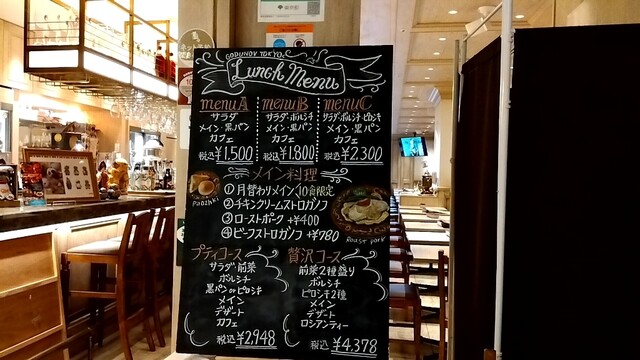 GODUNOV TOKYO
Lunch Menu
menu A
サラダ
メイン・黒パン
カフェ
税込 ¥1,500
menu B
サラダ・ボルシチ
メイン・黒パン
カフェ
税込 ¥1,800
menu C
サラダ・ボルシチ・ピロシキ
メイン・黒パン
カフェ
税込 ¥2,300
メイン料理
①月替わりメイン 10食限定
②チキンクリームストロガノフ
③ローストポーク +¥400
④ビーフストロガノフ +¥780
Roast pork
プティコース
サラダ前菜
ボルシチ
黒パン or ピロシキ
メイン
デザート
カフェ
税込 ¥2,948
贅沢コース
前菜2種盛り
ボルシチ
ピロシキ2種
メイン
デザート
ロシアンティー
税込 ¥4,378